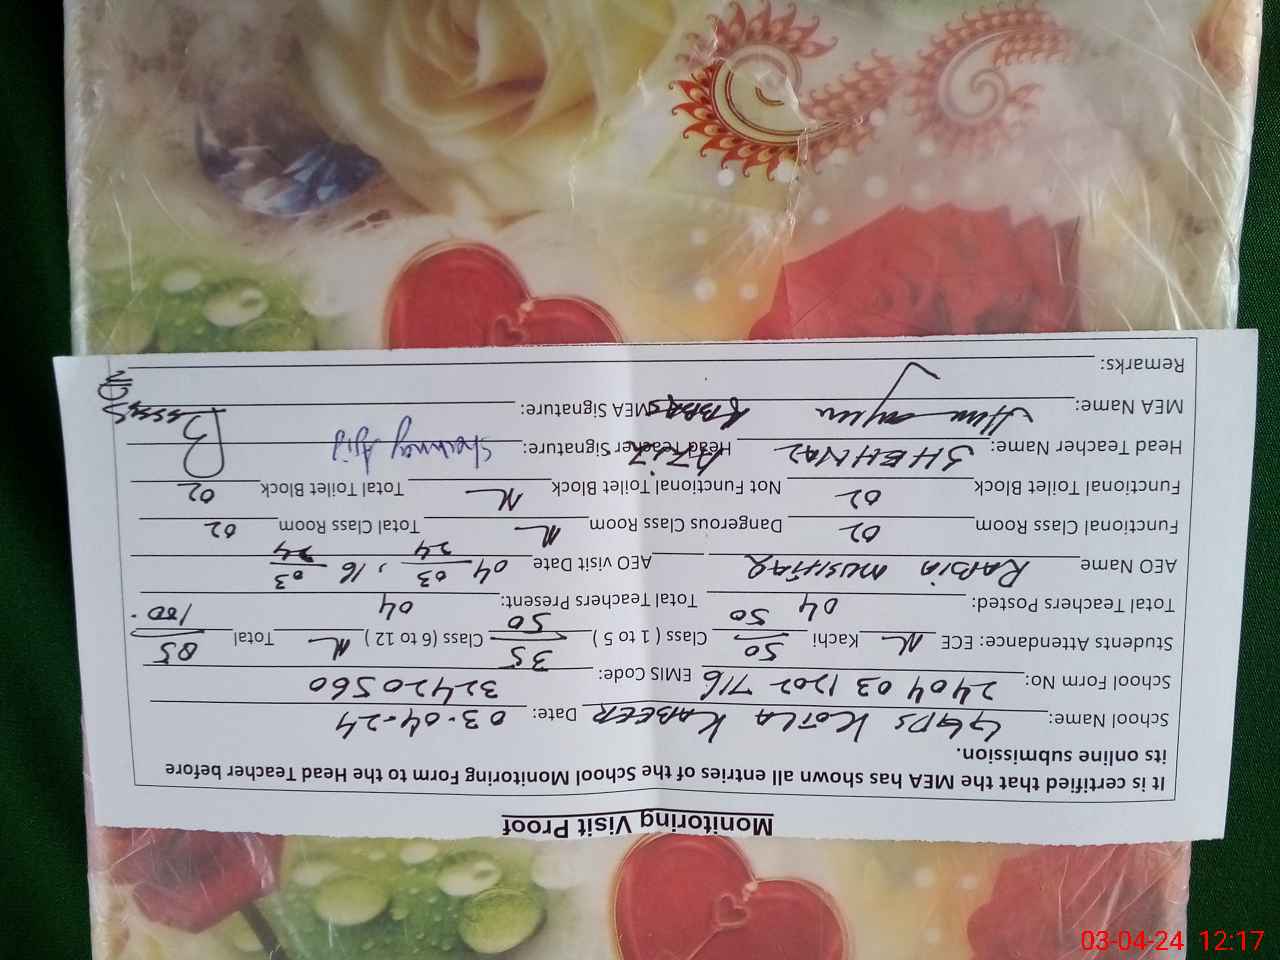 Monitoring Visit Proof
It is certified that the MEA has shown all entries of the School Monitoring Form to the Head Teacher before
its online submission.
School Name: GGPS KOTLA KABEER Date: 03-04-24
School Form No: 2404031202716 EMIS Code: 32420560
Students Attendance: ECE N Kachi 50/50 Class ( 1 to 5 ) 35/50 Class (6 to 12 ) N Total 85/100
Total Teachers Posted: 04 Total Teachers Present: 04
AEO Name RABIA MUSHTAQ AEO visit Date 04 03/24, 16 03/24
Functional Class Room 02 Dangerous Class Room N Total Class Room 02
Functional Toilet Block 02 Not Functional Toilet Block N Total Toilet Block 02
Head Teacher Name: SHEHNAZ AZIZ Head Teacher Signature:
MEA Name: ABBAS MEA Signature:
Remarks:
03-04-24 12:17